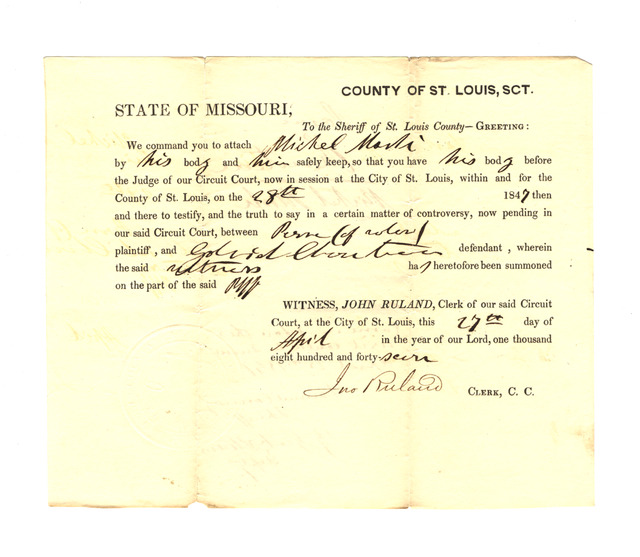 COUNTY OF ST. LOUIS, SCT.
STATE OF MISSOURI,
To the Sheriff of St. Louis County—GREETING:
We command you to attach Michel Marli
by his body and him safely keep, so that you have his body before
the Judge of our Circuit Court, now in session at the City of St. Louis, within and for the
County of St. Louis, on the 28th 1847 then
and there to testify, and the truth to say in a certain matter of controversy, now pending in
our said Circuit Court, between Pierre (of color)
plaintiff, and Chouteau defendant, wherein
the said witness has heretofore been summoned
on the part of the said Plff
WITNESS, JOHN RULAND, Clerk of our said Circuit
Court, at the City of St. Louis, this 27th day of
April in the year of our Lord, one thousand
eight hundred and forty-seven
Jno Ruland CLERK, C. C.